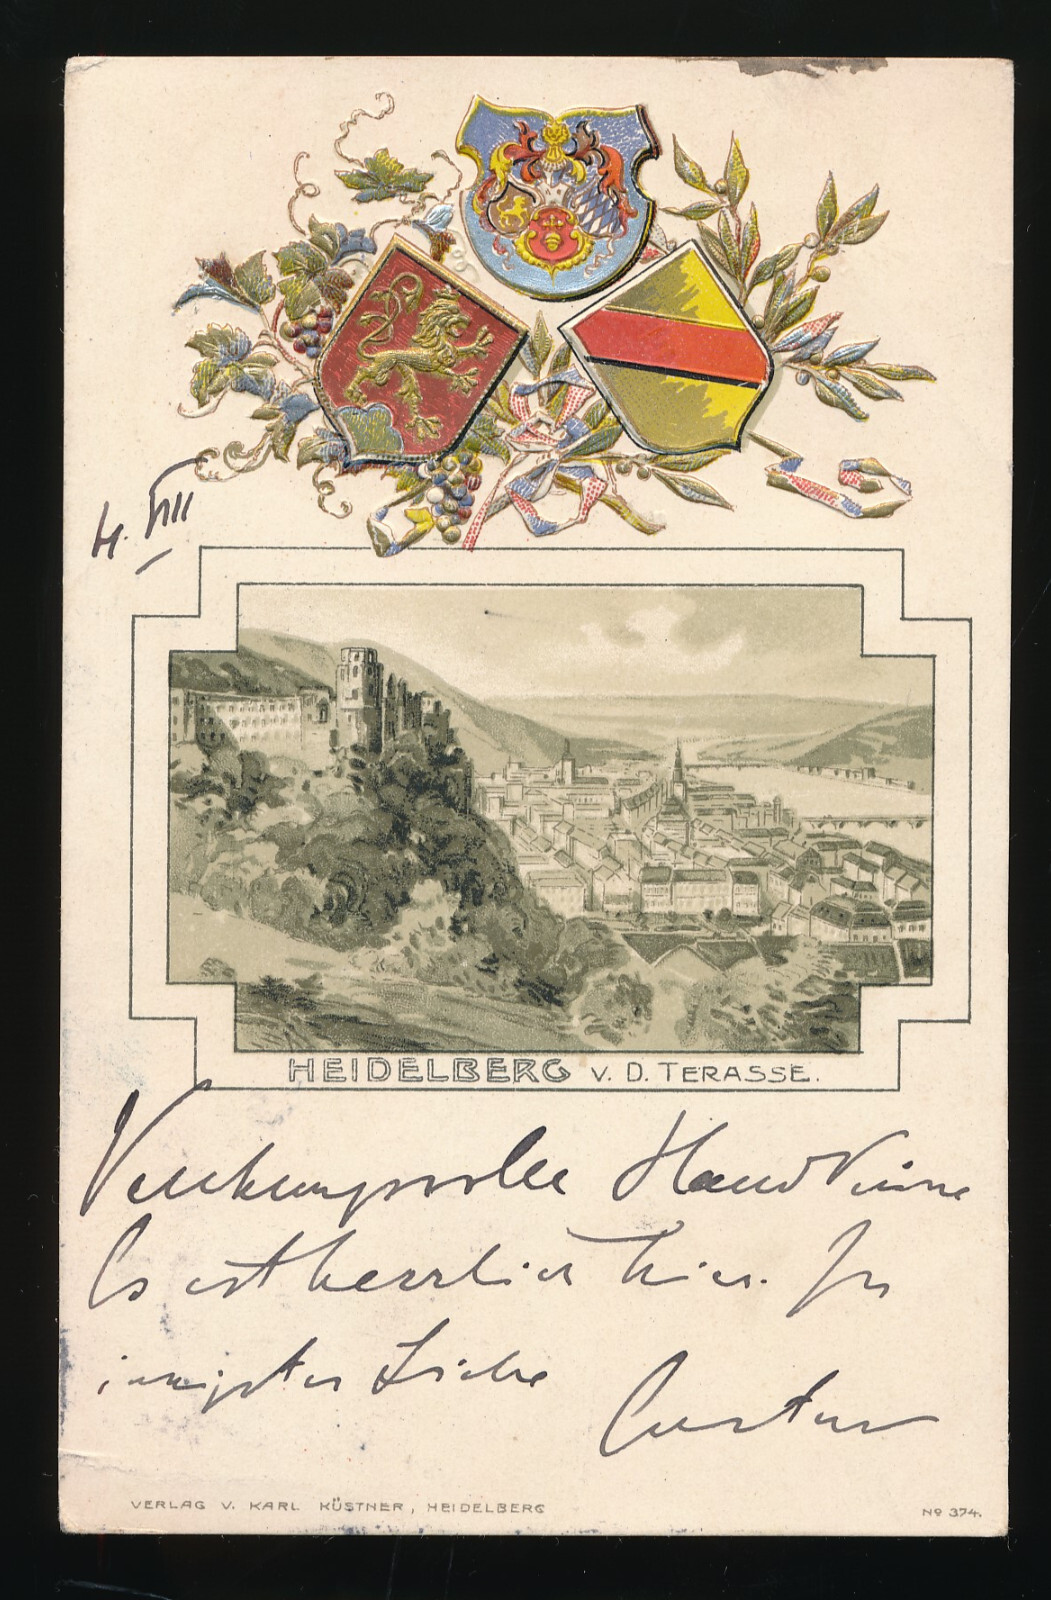 4. VIII
HEIDELBERG V. D. TERASSE.
Es ist herrlich hier. In
innigster Liebe
VERLAG V. KARL KÜSTNER, HEIDELBERG
No 374.